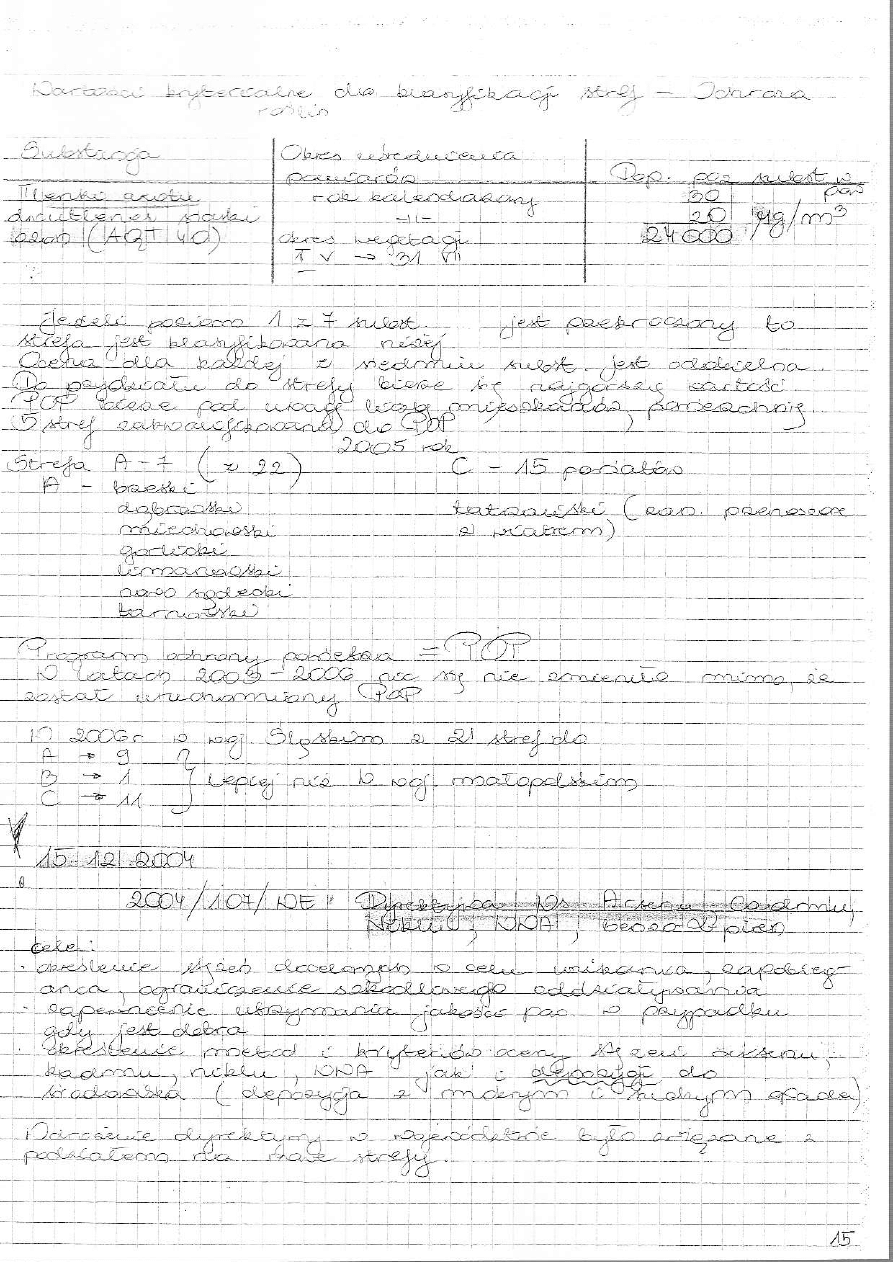 Wartości kryterialne do klasyfikacji stref – Ochrona
roślin
Substancja
Okres uśredniania
pomiarów
Dop. poz subst w
pow
Tlenki azotu
rok kalendarzowy
30
dwutlenek siarki
-11-
20 µg/m³
ozon (AOT 40)
okres wegetacji
24000
1 V → 31 VII
Jeżeli poziom 1 z 7 subst. jest przekroczony to
strefa jest klasyfikowana niżej
Ocena dla każdej z siedmiu subst. jest oddzielna
Do przydziału do strefy bierze się najgorszej wartości
POP bierze pod uwagę liczbę mieszkańców, powierzchnię.
5 stref zakwalifikowano do POP
2005 rok
Strefa A – 7 (z 22)
C – 15 powiatów
A – brzeski
dąbrowski
miechowski
gorlicki
limanowski
nowo sądecki
tarnowski
tatrzański (zan. przenoszone
z wiatrem)
Program ochrony powietrza = POP
W latach 2005 – 2006 nic się nie zmieniło mimo, że
został uruchomiony POP
W 2006 r w woj. Śląskim z 21 stref do
A → 9
B → 1 } lepiej niż w woj małopolskim
C → 11
15-12-2004
2004/107/WE " Dyrektywa Ws Arsenu Kadmu,
Niklu, WWA, benzo α piren
cele:
· określenie stężeń docelowych w celu unikania, zapobieg-
ania, ograniczenie szkodliwego oddziaływania
· zapewnienie utrzymaniu jakości pow w przypadku
gdy jest dobra
· określenie metod i kryteriów oceny stężeń arsenu,
kadmu, niklu, WWA jak i depozycji do
środowiska (depozycja z mokrym i suchym opadem)
Wdrożenie dyrektywy w województwie było związane z
podziałem na nowe strefy.
15